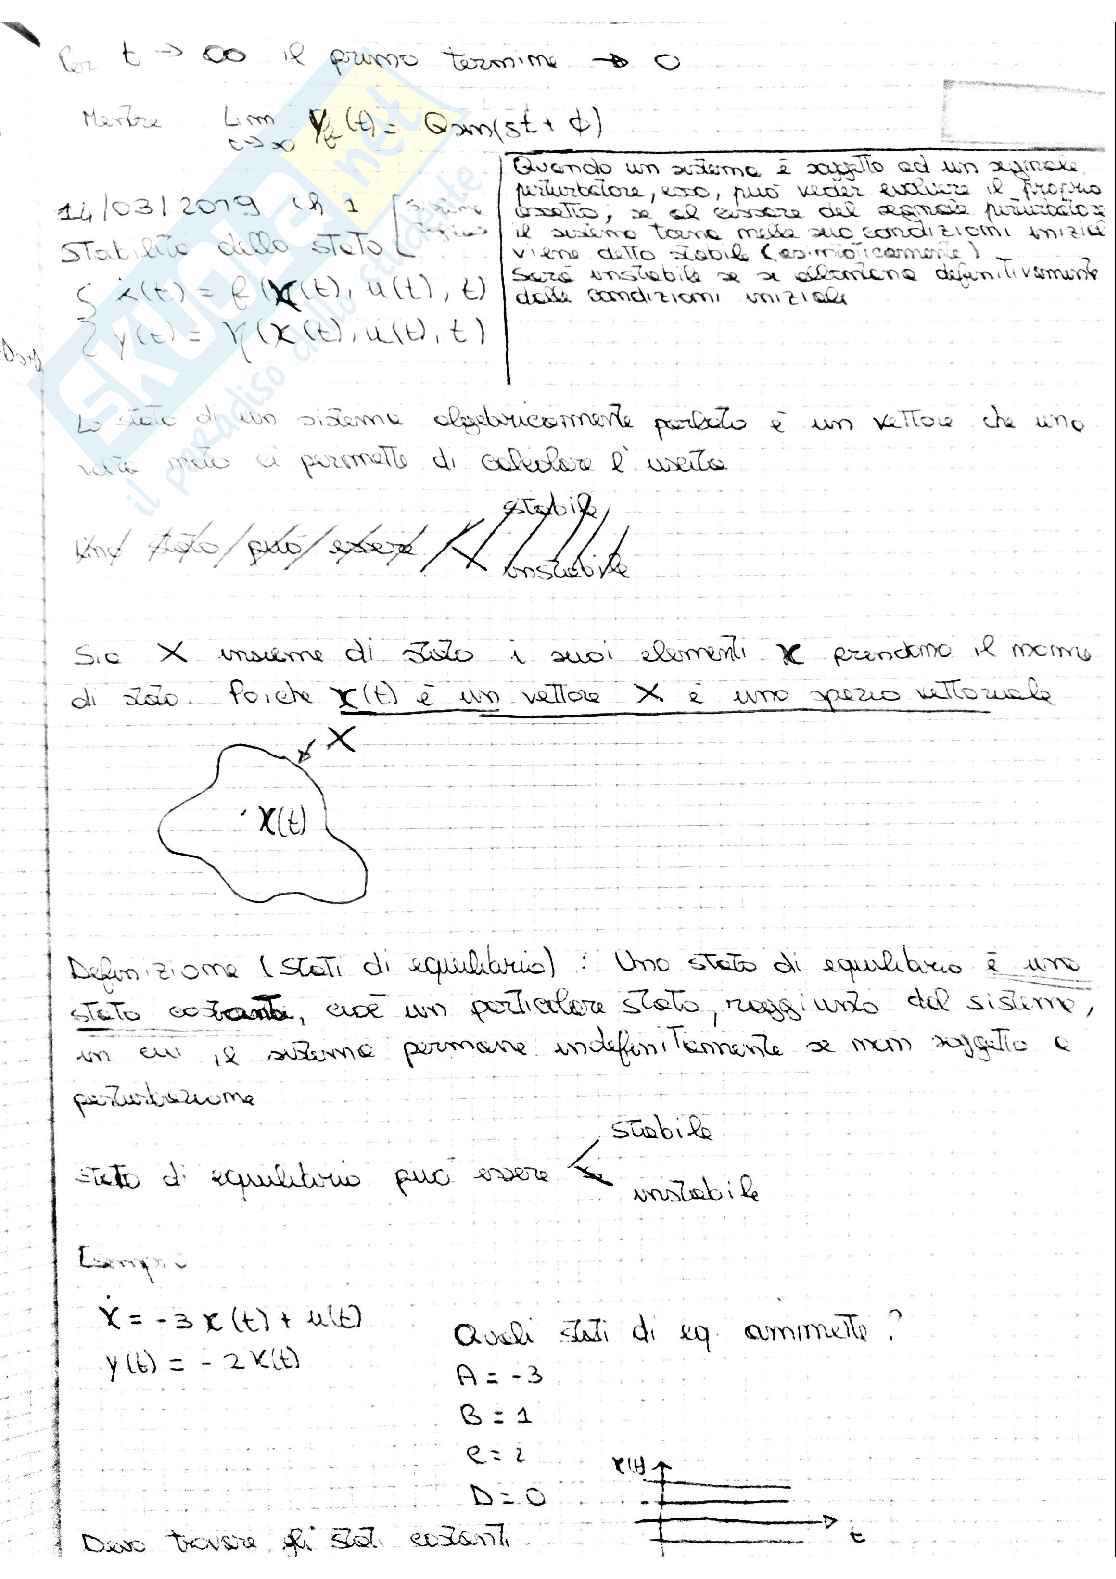 Per t → ∞ il primo termine → 0
Mentre Lim t→∞ (t) = Q sin(st + φ)
14/03/2019 Ch 1
Stabilità dello stato
ẋ(t) = f(x(t), u(t), t)
y(t) = η(x(t), u(t), t)
Quando un sistema è soggetto ad un segnale
perturbatore, esso, può veder evolvere il proprio
assetto, se al cessare del segnale perturbatore
il sistema torna nelle sue condizioni inizial
viene detto stabile (asintoticamente)
Sarà instabile se si allontana definitivamente
dalle condizioni iniziale
Lo stato di un sistema algebricamente parlato è un vettore che una
volta noto ci permette di calcolare l'uscita
stabile
Uno stato può essere
instabile
Sia X insieme di stato i suoi elementi x prendono il nome
di stato. Poiché x(t) è un vettore X è uno spazio vettoriale
X
x(t)
Definizione (Stati di equilibrio): Uno stato di equilibrio è uno
stato costante, cioè un particolare stato, raggiunto dal sistema,
in cui il sistema permane indefinitamente se non soggetto a
perturbazione
stabile
stato di equilibrio può essere
instabile
Esempi
ẋ = -3x(t) + u(t)
y(t) = -2x(t)
Quali stati di eq. ammette?
A = -3
B = 1
C = 2
D = 0
x(t)
t
Devo trovare gli stati costanti
skuola.net
il paradiso dello studente